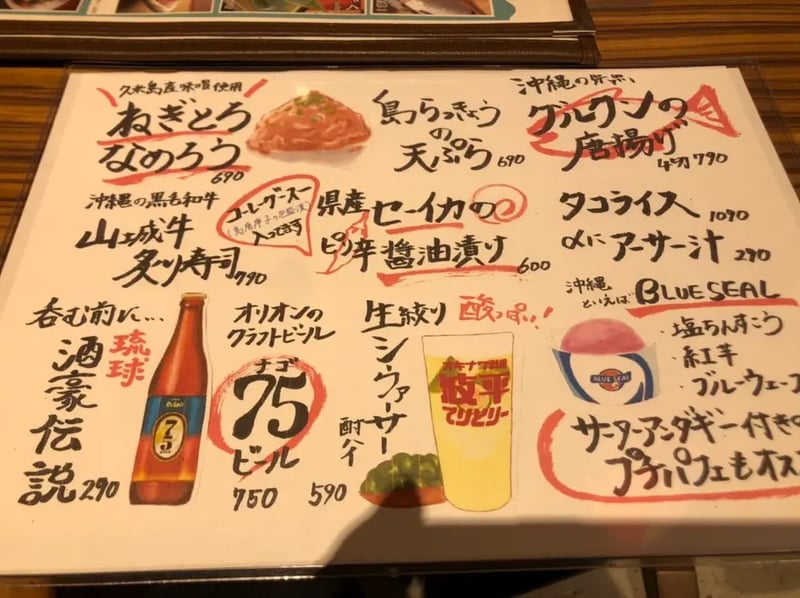 久米島産味噌使用
ねぎとろ
なめろう
690
島らっきょう
の
天ぷら 690
沖縄の県魚
グルクンの
唐揚げ
4切 790
沖縄の黒毛和牛
山城牛
炙り寿司 790
コーレーグースー
入ってます
県産セーイカの
ピリ辛醤油漬け 600
タコライス 1090
αに アーサー汁 290
呑む前に...
琉球
酒豪伝説 290
Orion
75
BEER
オリオンの
クラフトビール
ナゴ
75
ビール
750
生絞り 酸っぱい!
シークァーサー
酎ハイ
590
波平
てりとりー
沖縄
といえば BLUE SEAL
BLUE SEAL
・塩ちんすこう
・紅芋
・ブルーウェーブ
サーターアンダギー付きの
プチパフェもオス